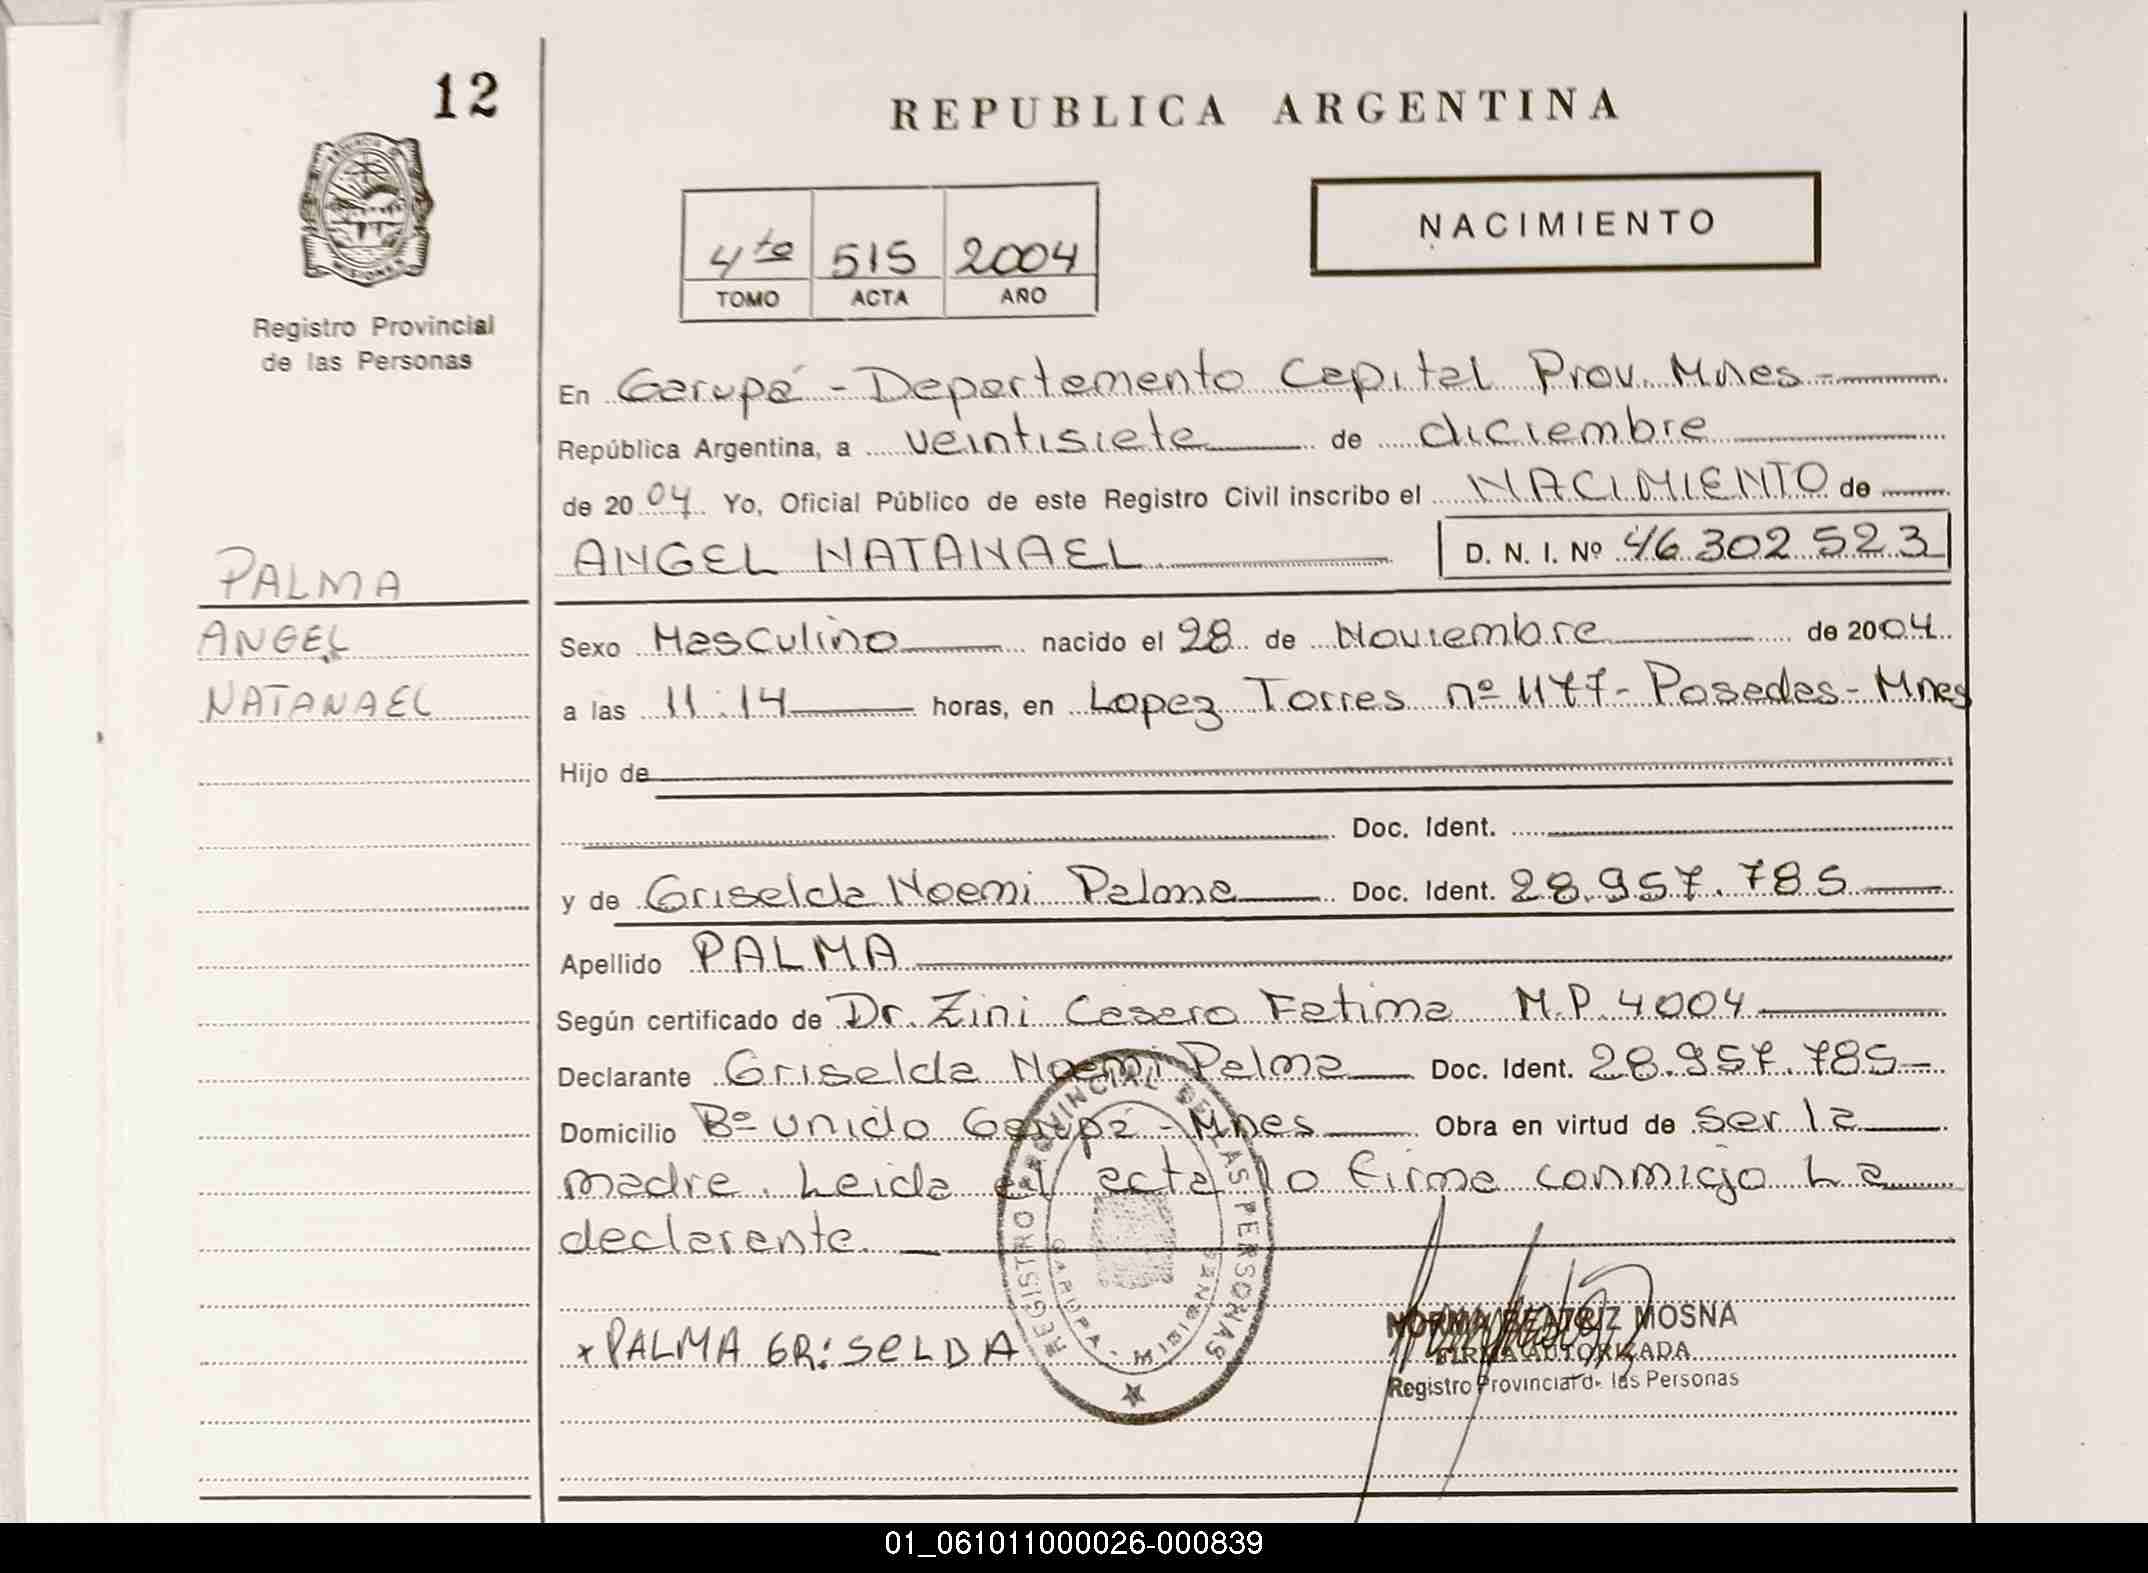 12
REPUBLICA ARGENTINA
PROVINCIA DE
MISIONES
Registro Provincial
de las Personas
4to 515 2004
TOMO ACTA AÑO
NACIMIENTO
En Garupá - Departamento Capital Prov. Mnes -
República Argentina, a veintisiete de diciembre
de 2004 Yo, Oficial Público de este Registro Civil inscribo el NACIMIENTO de
ANGEL NATANAEL D. N. I. Nº 46.302.523
PALMA
ANGEL
NATANAEL
Sexo Masculino nacido el 28 de Noviembre de 2004
a las 11:14 horas, en Lopez Torres nº 1177 - Posadas - Mnes
Hijo de
Doc. Ident.
y de Griselda Noemi Palma Doc. Ident. 28.957.785
Apellido PALMA
Según certificado de Dr. Zini Casero Fatima M.P. 4004
Declarante Griselda Noemi Palma Doc. Ident. 28.957.785
Domicilio Bº unido Garupá - Mnes Obra en virtud de ser la
madre. Leida el acta lo firma conmigo La
declarante.
REGISTRO PROVINCIAL DE LAS PERSONAS
GARUPA - MISIONES
x PALMA GRiSELDA
NORMA BEATRIZ MOSNA
FIRMA AUTORIZADA
Registro Provincial de las Personas
01_061011000026-000839